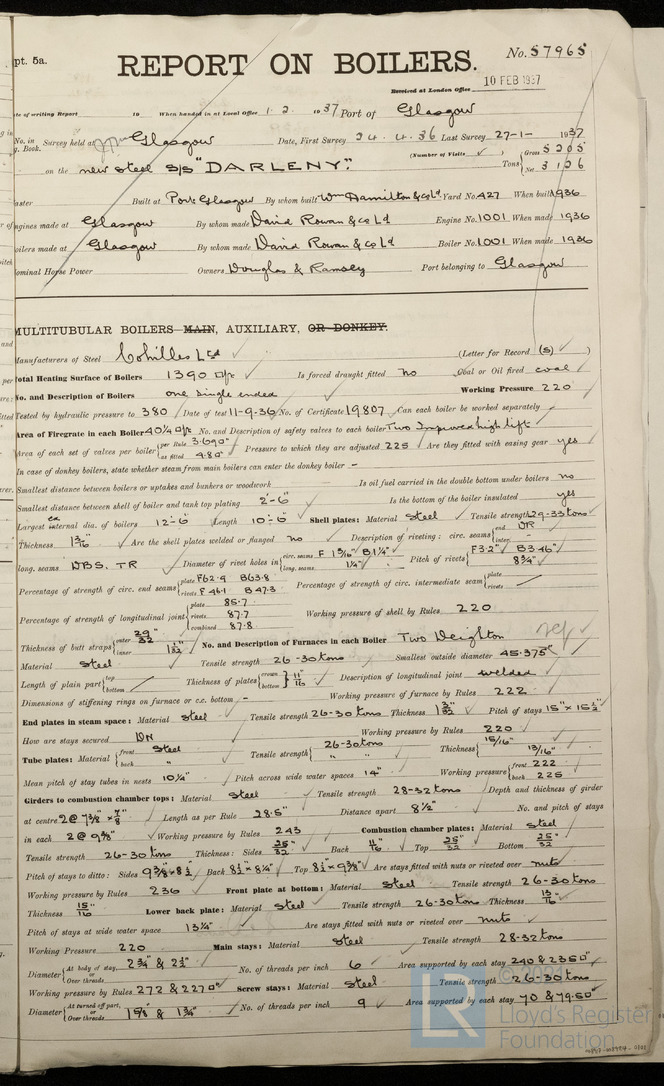 pt. 5a.
REPORT ON BOILERS.
No. 57965
Received at London Office 10 FEB 1937
te of writing Report 19 When handed in at Local Office 1.2. 1937 Port of Glasgow
No. in Survey held at Glasgow Date, First Survey 24.4.36 Last Survey 27-1- 1937
. Book. (Number of Visits ✓ )
on the new steel S/S "DARLENY". Tons { Gross 5205 Net 3126
aster Built at Port Glasgow By whom built Wm Hamilton & Co Ld Yard No. 427 When built 1936
ngines made at Glasgow By whom made David Rowan & Co Ld Engine No. 1001 When made 1936
oilers made at Glasgow By whom made David Rowan & Co Ld Boiler No. 1001 When made 1936
ominal Horse Power Owners Douglas & Ramsey Port belonging to Glasgow
MULTITUBULAR BOILERS MAIN, AUXILIARY, OR DONKEY.
Manufacturers of Steel Colvilles Ltd (Letter for Record (S) )
Total Heating Surface of Boilers 1390 □ft Is forced draught fitted No Coal or Oil fired coal
No. and Description of Boilers one single ended Working Pressure 220
Tested by hydraulic pressure to 380 Date of test 11-9-36 No. of Certificate 19807 Can each boiler be worked separately ✓
Area of Firegrate in each Boiler 40¼ □ft No. and Description of safety valves to each boiler Two Improved high lift
Area of each set of valves per boiler { per Rule 3.690" as fitted 4.80" Pressure to which they are adjusted 225 Are they fitted with easing gear yes
In case of donkey boilers, state whether steam from main boilers can enter the donkey boiler –
Smallest distance between boilers or uptakes and bunkers or woodwork Is oil fuel carried in the double bottom under boilers no
Smallest distance between shell of boiler and tank top plating 2'-6" Is the bottom of the boiler insulated yes
Largest ex internal dia. of boilers 12'-6" Length 10'-6" Shell plates: Material Steel Tensile strength 29-33 tons
Thickness 1 3/16" Are the shell plates welded or flanged no Description of riveting: circ. seams { end DR inter. –
long. seams DBS. TR Diameter of rivet holes in { circ. seams F 1 3/16" B 1¼" long. seams 1¼" Pitch of rivets { F 3.2" B 3.46" 8¾"
Percentage of strength of circ. end seams { plate F 62.9 B 63.8 rivets F 46.1 B 47.3 Percentage of strength of circ. intermediate seam { plate rivets
Percentage of strength of longitudinal joint { plate 85.7 rivets 87.7 combined 87.8 Working pressure of shell by Rules 220
Thickness of butt straps { outer 29/32 inner 1 1/32" No. and Description of Furnaces in each Boiler Two Deighton
Material Steel Tensile strength 26-30 tons Smallest outside diameter 45.375"
Length of plain part { top bottom Thickness of plates { crown bottom } 11/16" Description of longitudinal joint welded
Dimensions of stiffening rings on furnace or c.c. bottom – Working pressure of furnace by Rules 222
End plates in steam space: Material Steel Tensile strength 26-30 tons Thickness 1 3/32" Pitch of stays 15" x 15½"
How are stays secured DN Working pressure by Rules 220
Tube plates: Material { front Steel back " Tensile strength { 26-30 tons " " Thickness { 15/16" 13/16"
Mean pitch of stay tubes in nests 10¼" Pitch across wide water spaces 14" Working pressure { front 222 back 225
Girders to combustion chamber tops: Material Steel Tensile strength 28-32 tons Depth and thickness of girder
at centre 2@ 7⅜" x ⅞" Length as per Rule 28.5" Distance apart 8½" No. and pitch of stays
in each 2@ 9⅜" Working pressure by Rules 243 Combustion chamber plates: Material Steel
Tensile strength 26-30 tons Thickness: Sides 25/32" Back 11/16" Top 25/32" Bottom 25/32"
Pitch of stays to ditto: Sides 9⅜ x 8½ Back 8½" x 8¼" Top 8½" x 9⅜" Are stays fitted with nuts or riveted over nuts
Working pressure by Rules 236 Front plate at bottom: Material Steel Tensile strength 26-30 tons
Thickness 15/16" Lower back plate: Material Steel Tensile strength 26-30 tons Thickness 13/16"
Pitch of stays at wide water space 13¼" Are stays fitted with nuts or riveted over nuts
Working Pressure 220 Main stays: Material Steel Tensile strength 28-32 tons
Diameter { At body of stay, or Over threads 2¾" & 2½" No. of threads per inch 6 Area supported by each stay 240 & 235□"
Working pressure by Rules 272 & 227□" Screw stays: Material Steel Tensile strength 26-30 tons
Diameter { At turned off part, or Over threads 1⅝" & 1¾" No. of threads per inch 9 Area supported by each stay 70 & 79.5□"
© 2021
LR
Lloyd's Register
Foundation